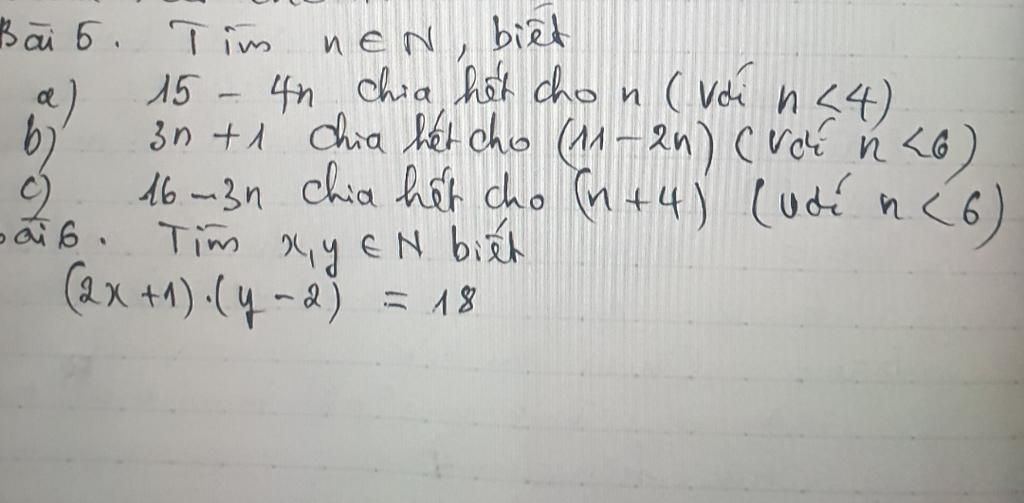 Bài 5. Tìm n ∈ N, biết
a) 15 - 4n chia hết cho n (với n < 4)
b) 3n + 1 chia hết cho (11 - 2n) (với n < 6)
c) 16 - 3n chia hết cho (n + 4) (với n < 6)
Bài 6. Tìm x, y ∈ N biết
(2x + 1).(y - 2) = 18